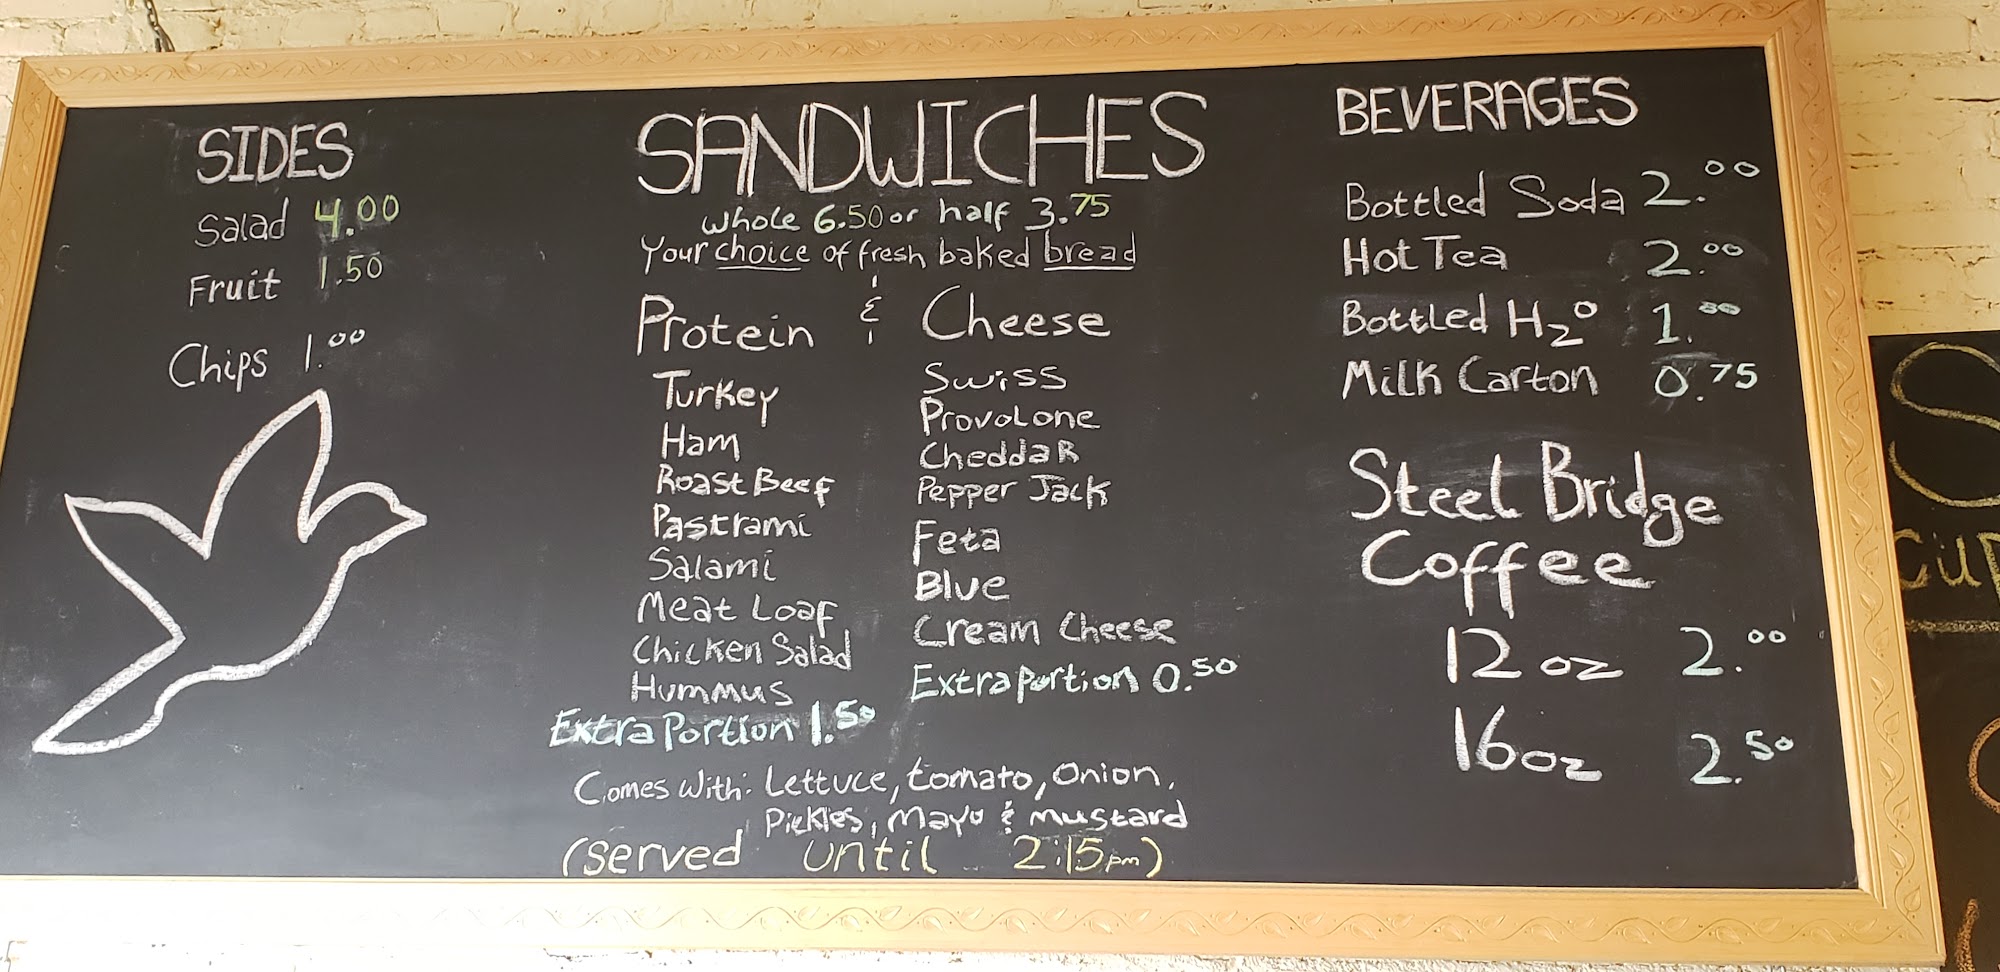 SIDES
Salad 4.00
Fruit 1.50
Chips 1.00
SANDWICHES
whole 6.50 or half 3.75
Your choice of fresh baked bread
Protein & Cheese
Turkey
Ham
Roast Beef
Pastrami
Salami
Meat Loaf
Chicken Salad
Hummus
Extra Portion 1.50
Swiss
Provolone
Cheddar
Pepper Jack
Feta
Blue
Cream Cheese
Extra portion 0.50
Comes with: Lettuce, tomato, onion,
Pickles, mayo & mustard
(served until 2:15pm)
BEVERAGES
Bottled Soda 2.00
Hot Tea 2.00
Bottled H2O 1.00
Milk Carton 0.75
Steel Bridge
Coffee
12 oz 2.00
16 oz 2.50